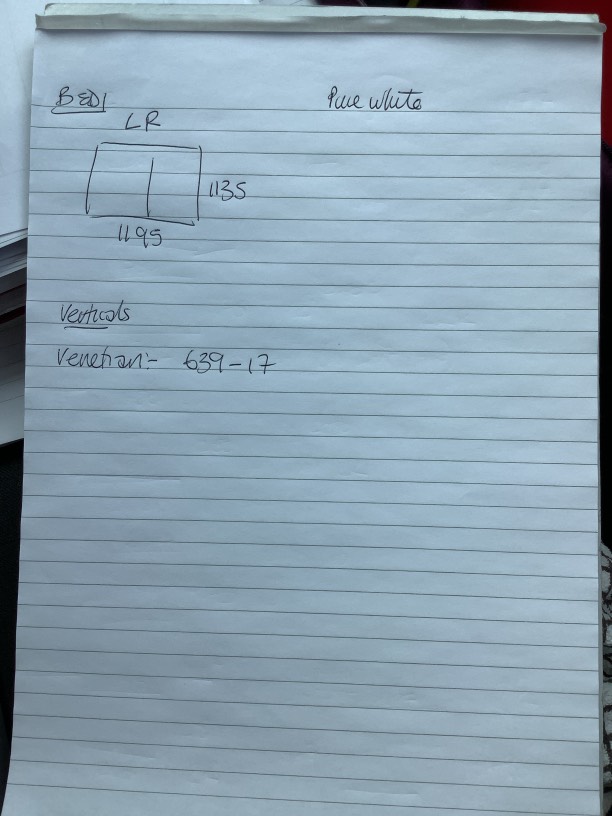 BED1
Pure white
LR
1135
1195
Verticals
Venetian:- 639-17